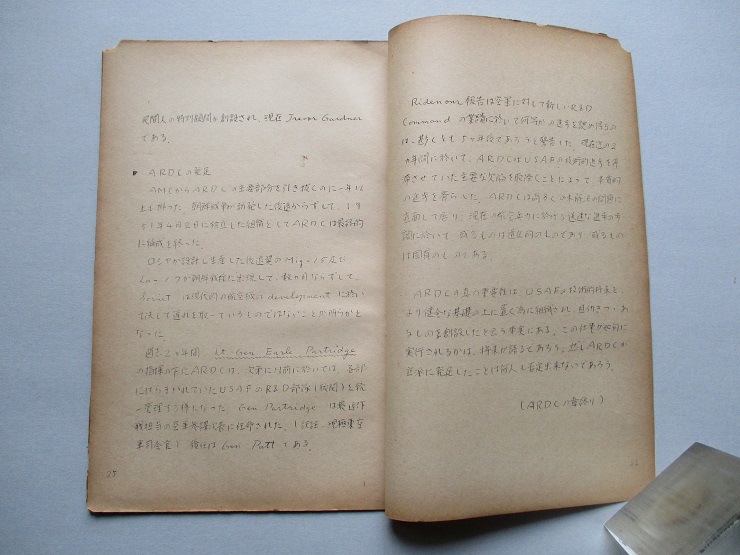 民間人の特別顧問が創設され、現在 Trevor Gardner
である。
ARDCの発足
AMCからARDCの主要部分を引き継ぐのに一年以
上も掛った。朝鮮戦争が勃発した後遅からずして、19
51年4月2日に独立した組織としてARDCは最終的
に編成を終った。
ロシヤが設計し生産した後退翼のMig-15及び
が朝鮮戦線に出現して、数か月ならずして、
Soviet は現代的の航空機の development に於い
て決して遅れを取っているものではないことが明らかと
なった。
過去2ヶ年間 Lt Gen Earle Partridge
の指揮の下にARDCは、次第に以前に於いては、各部
に USAFのR&D部隊(機関)を統
一管理する様になった。Gen Partridge は最近作
戦担当の空軍参謀次長に任命された。(訳註、現極東空
軍司令官) 後任は Gen Putt である。
25
Ridenour 報告は空軍に対して新しいR&D
Command の業績に於いて何等かの進歩を認め得るの
は、尠くとも5ヶ年後であろうと警告した。現在迄の2
ヶ年間に於いて、ARDCはUSAFの技術的進歩を停
帯させていた主要な欠陥を除くことによって、本質的
の進歩を齎らした。ARDCは尚多くの未解決の問題に
直面して居り、現在の様な に於ける迅速な進歩の時
期に於いて、或るものは過渡的のものであり、或るもの
は固有のものである。
ARDCの真の重要性は、USAFの技術的将来を、
より健全な基礎の上に置く為に組織され、目的を
るものを創設したと云う事実にある。この仕事が如何に
実行されるかは、将来が語るであろう。然しARDCが
立派に発足したことは何人も否定出来ないであろう。
(ARDCの 終り)
26